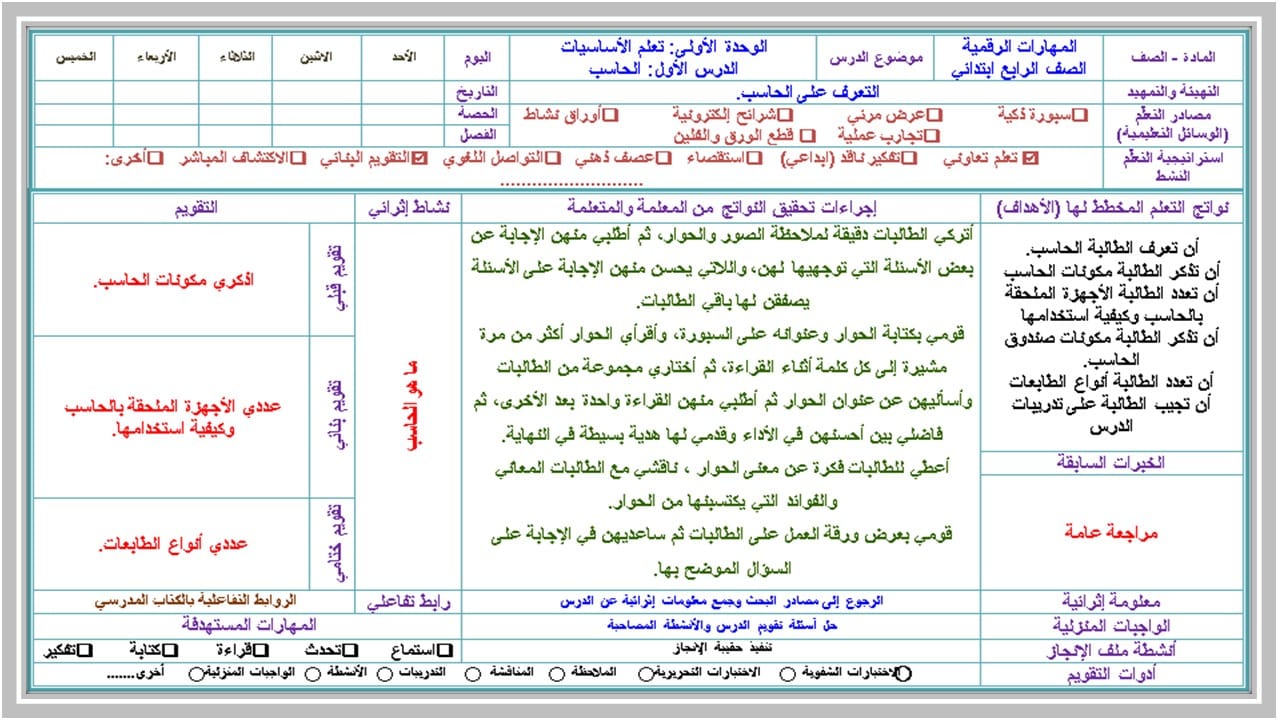 المادة - الصف
المهارات الرقمية
الصف الرابع ابتدائي
موضوع الدرس
الوحدة الأولى: تعلم الأساسيات
الدرس الأول: الحاسب
اليوم
الأحد
الاثنين
الثلاثاء
الأربعاء
الخميس
التهيئة والتمهيد
التعرف على الحاسب.
التاريخ
مصادر التعلّم
(الوسائل التعليمية)
سبورة ذكية
عرض مرئي
شرائح إلكترونية
أوراق نشاط
تجارب عملية
قطع الورق والفلين
الحصة
الفصل
استراتيجية التعلّم
النشط
تعلم تعاوني
تفكير ناقد (إبداعي)
استقصاء
عصف ذهني
التواصل اللغوي
التقويم البنائي
الاكتشاف المباشر
أخرى:
............................
نواتج التعلم المخطط لها (الأهداف)
إجراءات تحقيق النواتج من المعلمة والمتعلمة
نشاط إثرائي
التقويم
أن تعرف الطالبة الحاسب.
أن تذكر الطالبة مكونات الحاسب
أن تعدد الطالبة الأجهزة الملحقة
بالحاسب وكيفية استخدامها
أن تذكر الطالبة مكونات صندوق
الحاسب.
أن تعدد الطالبة أنواع الطابعات
أن تجيب الطالبة على تدريبات
الدرس
الخبرات السابقة
مراجعة عامة
أتركي الطالبات دقيقة لملاحظة الصور والحوار، ثم أطلبي منهن الإجابة عن
بعض الأسئلة التي توجهيها لهن، واللاتي يحسن منهن الإجابة على الأسئلة
يصفقن لها باقي الطالبات.
قومي بكتابة الحوار وعنوانه على السبورة، وأقرأي الحوار أكثر من مرة
مشيرة إلى كل كلمة أثناء القراءة، ثم أختاري مجموعة من الطالبات
وأسأليهن عن عنوان الحوار ثم أطلبي منهن القراءة واحدة بعد الأخرى، ثم
فاضلي بين أحسنهن في الأداء وقدمي لها هدية بسيطة في النهاية.
أعطي للطالبات فكرة عن معنى الحوار ، ناقشي مع الطالبات المعاني
والفوائد التي يكتسبنها من الحوار.
قومي بعرض ورقة العمل على الطالبات ثم ساعديهن في الإجابة على
السؤال الموضح بها.
ما هو الحاسب
تقويم قبلي
اذكري مكونات الحاسب.
تقويم بنائي
عددي الأجهزة الملحقة بالحاسب
وكيفية استخدامها.
تقويم ختامي
عددي أنواع الطابعات.
معلومة إثرائية
الرجوع إلى مصادر البحث وجمع معلومات إثرائية عن الدرس
رابط تفاعلي
الروابط التفاعلية بالكتاب المدرسي
الواجبات المنزلية
حل أسئلة تقويم الدرس والأنشطة المصاحبة
المهارات المستهدفة
أنشطة ملف الإنجاز
تنفيذ حقيبة الإنجاز
استماع
تحدث
قراءة
كتابة
تفكير
أدوات التقويم
الاختبارات الشفوية
الاختبارات التحريرية
الملاحظة
المناقشة
التدريبات
الأنشطة
الواجبات المنزلية
أخرى.......